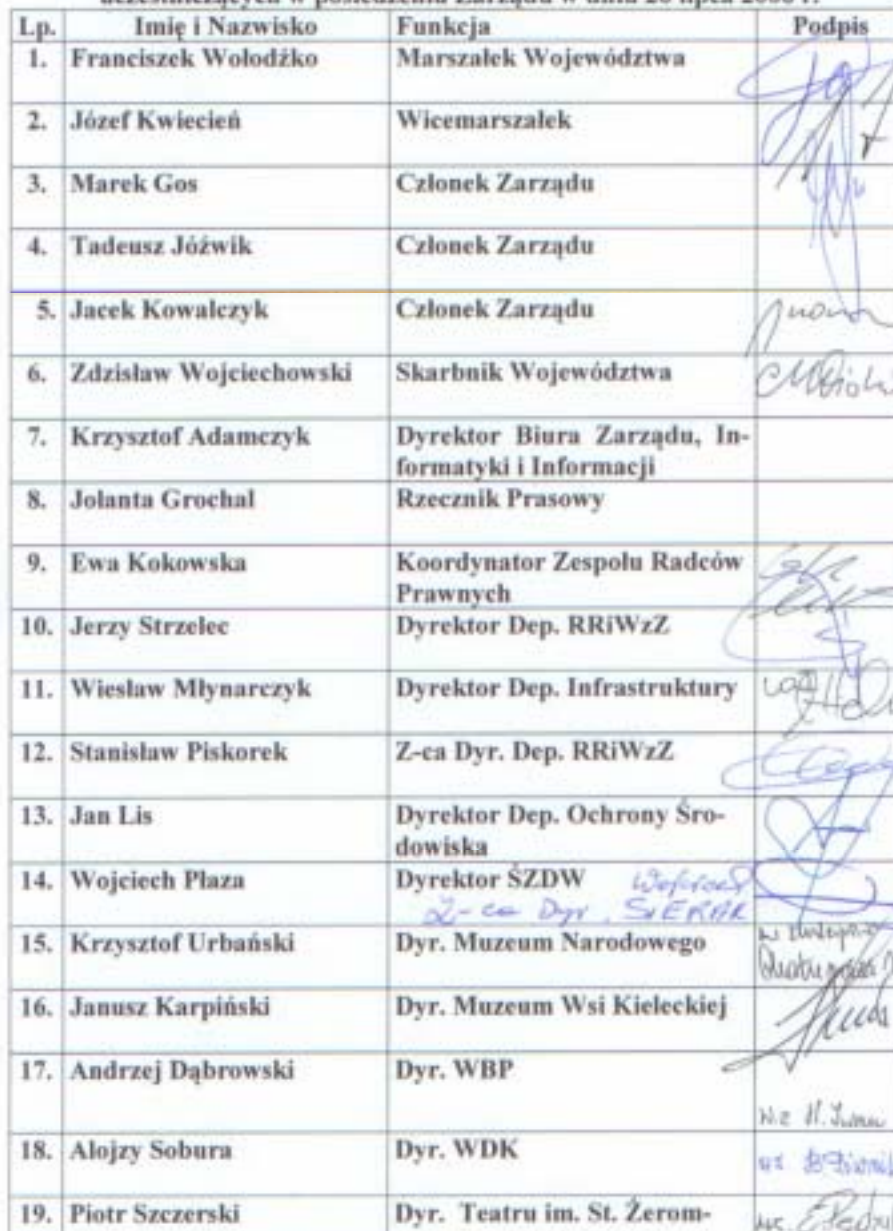 uczestniczących w posiedzeniu Zarządu w dniu 26 lipca 2006 r.
Lp. Imię i Nazwisko Funkcja Podpis
1. Franciszek Wołodźko Marszałek Województwa
2. Józef Kwiecień Wicemarszałek
3. Marek Gos Członek Zarządu
4. Tadeusz Jóźwik Członek Zarządu
5. Jacek Kowalczyk Członek Zarządu
6. Zdzisław Wojciechowski Skarbnik Województwa
7. Krzysztof Adamczyk Dyrektor Biura Zarządu, In-
formatyki i Informacji
8. Jolanta Grochal Rzecznik Prasowy
9. Ewa Kokowska Koordynator Zespołu Radców
Prawnych
10. Jerzy Strzelec Dyrektor Dep. RRiWzZ
11. Wiesław Młynarczyk Dyrektor Dep. Infrastruktury
12. Stanisław Piskorek Z-ca Dyr. Dep. RRiWzZ
13. Jan Lis Dyrektor Dep. Ochrony Śro-
dowiska
14. Wojciech Płaza Dyrektor ŚZDW Wojciech
Z-ca Dyr.
15. Krzysztof Urbański Dyr. Muzeum Narodowego
16. Janusz Karpiński Dyr. Muzeum Wsi Kieleckiej
17. Andrzej Dąbrowski Dyr. WBP
18. Alojzy Sobura Dyr. WDK
19. Piotr Szczerski Dyr. Teatru im. St. Żerom-